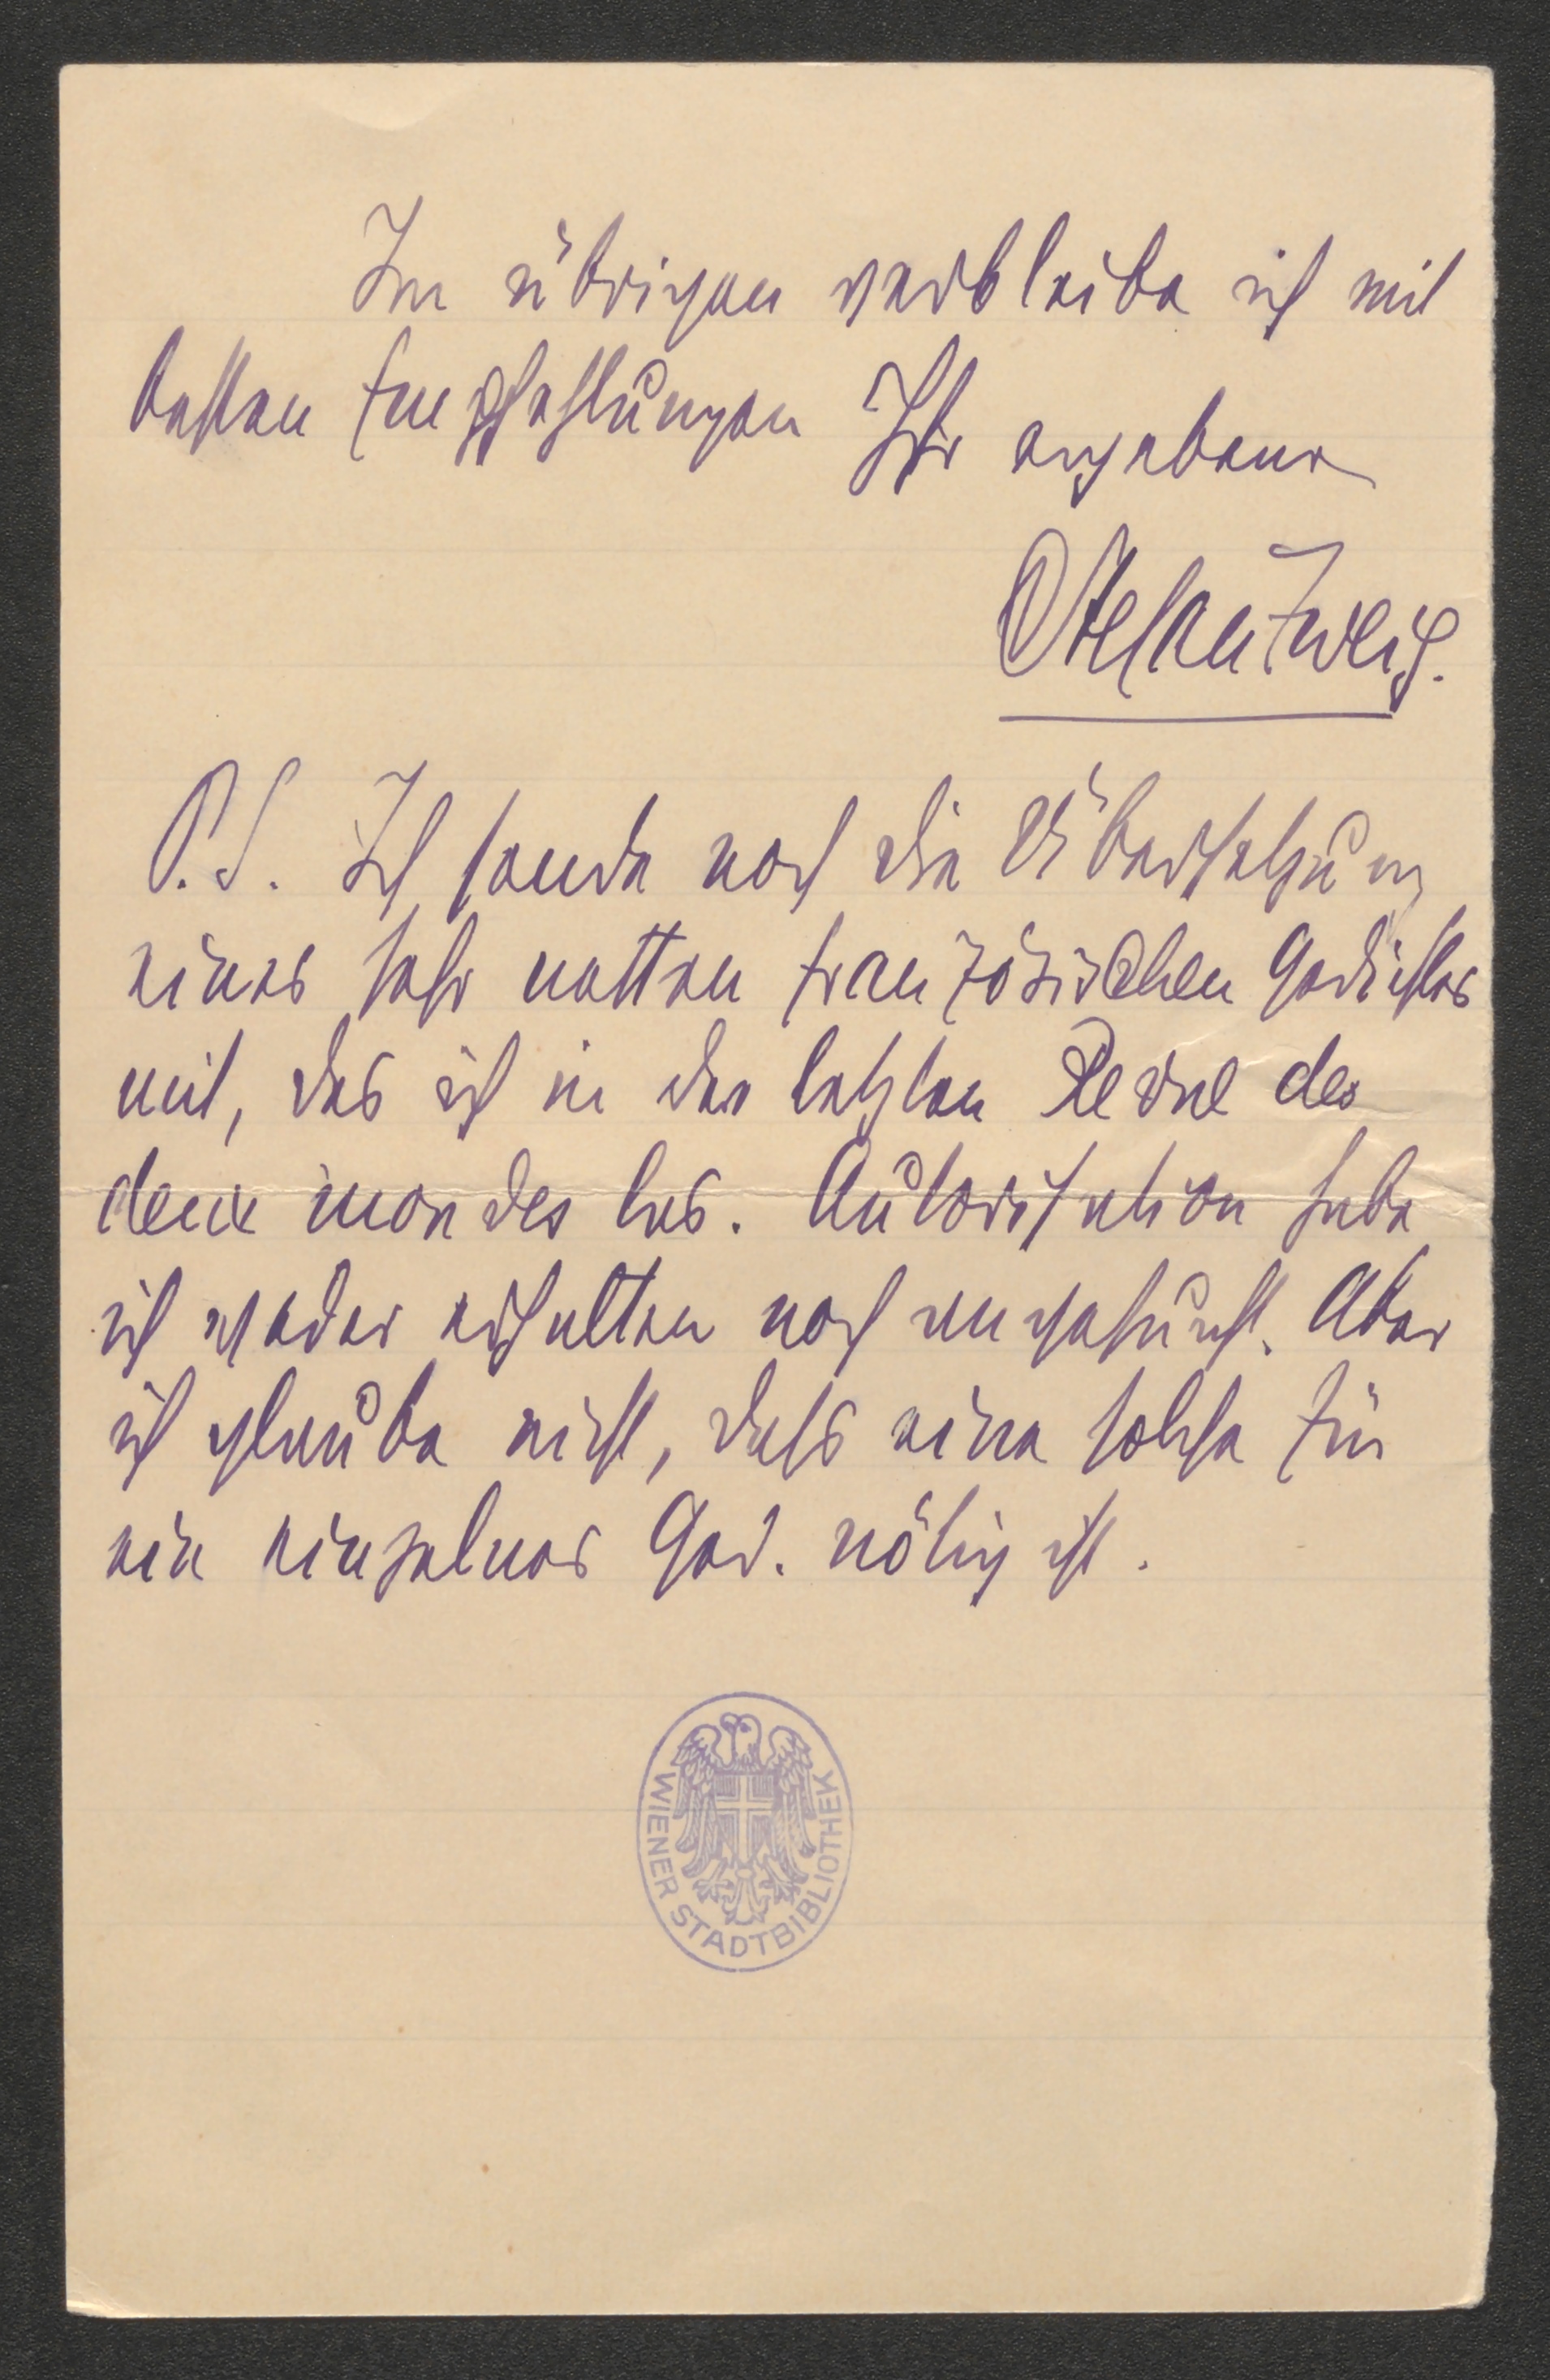 Im übrigen verbleibe ich mit
besten Empfehlungen Ihr ergebener
Stefan Zweig.
P.S. Ich sende noch die Übersetzung
eines sehr netten französischen Gedichtes
mit, das ich in der letzten Revue des
deux mondes las. Autorisation habe
ich weder erhalten noch angesucht. Aber
ich glaube nicht, dass eine solche für
ein einzelnes Ged. nötig ist.
WIENER STADTBIBLIOTHEK